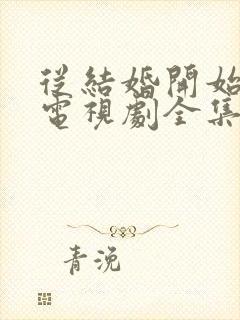 從結婚開始
電視劇全集
青浼